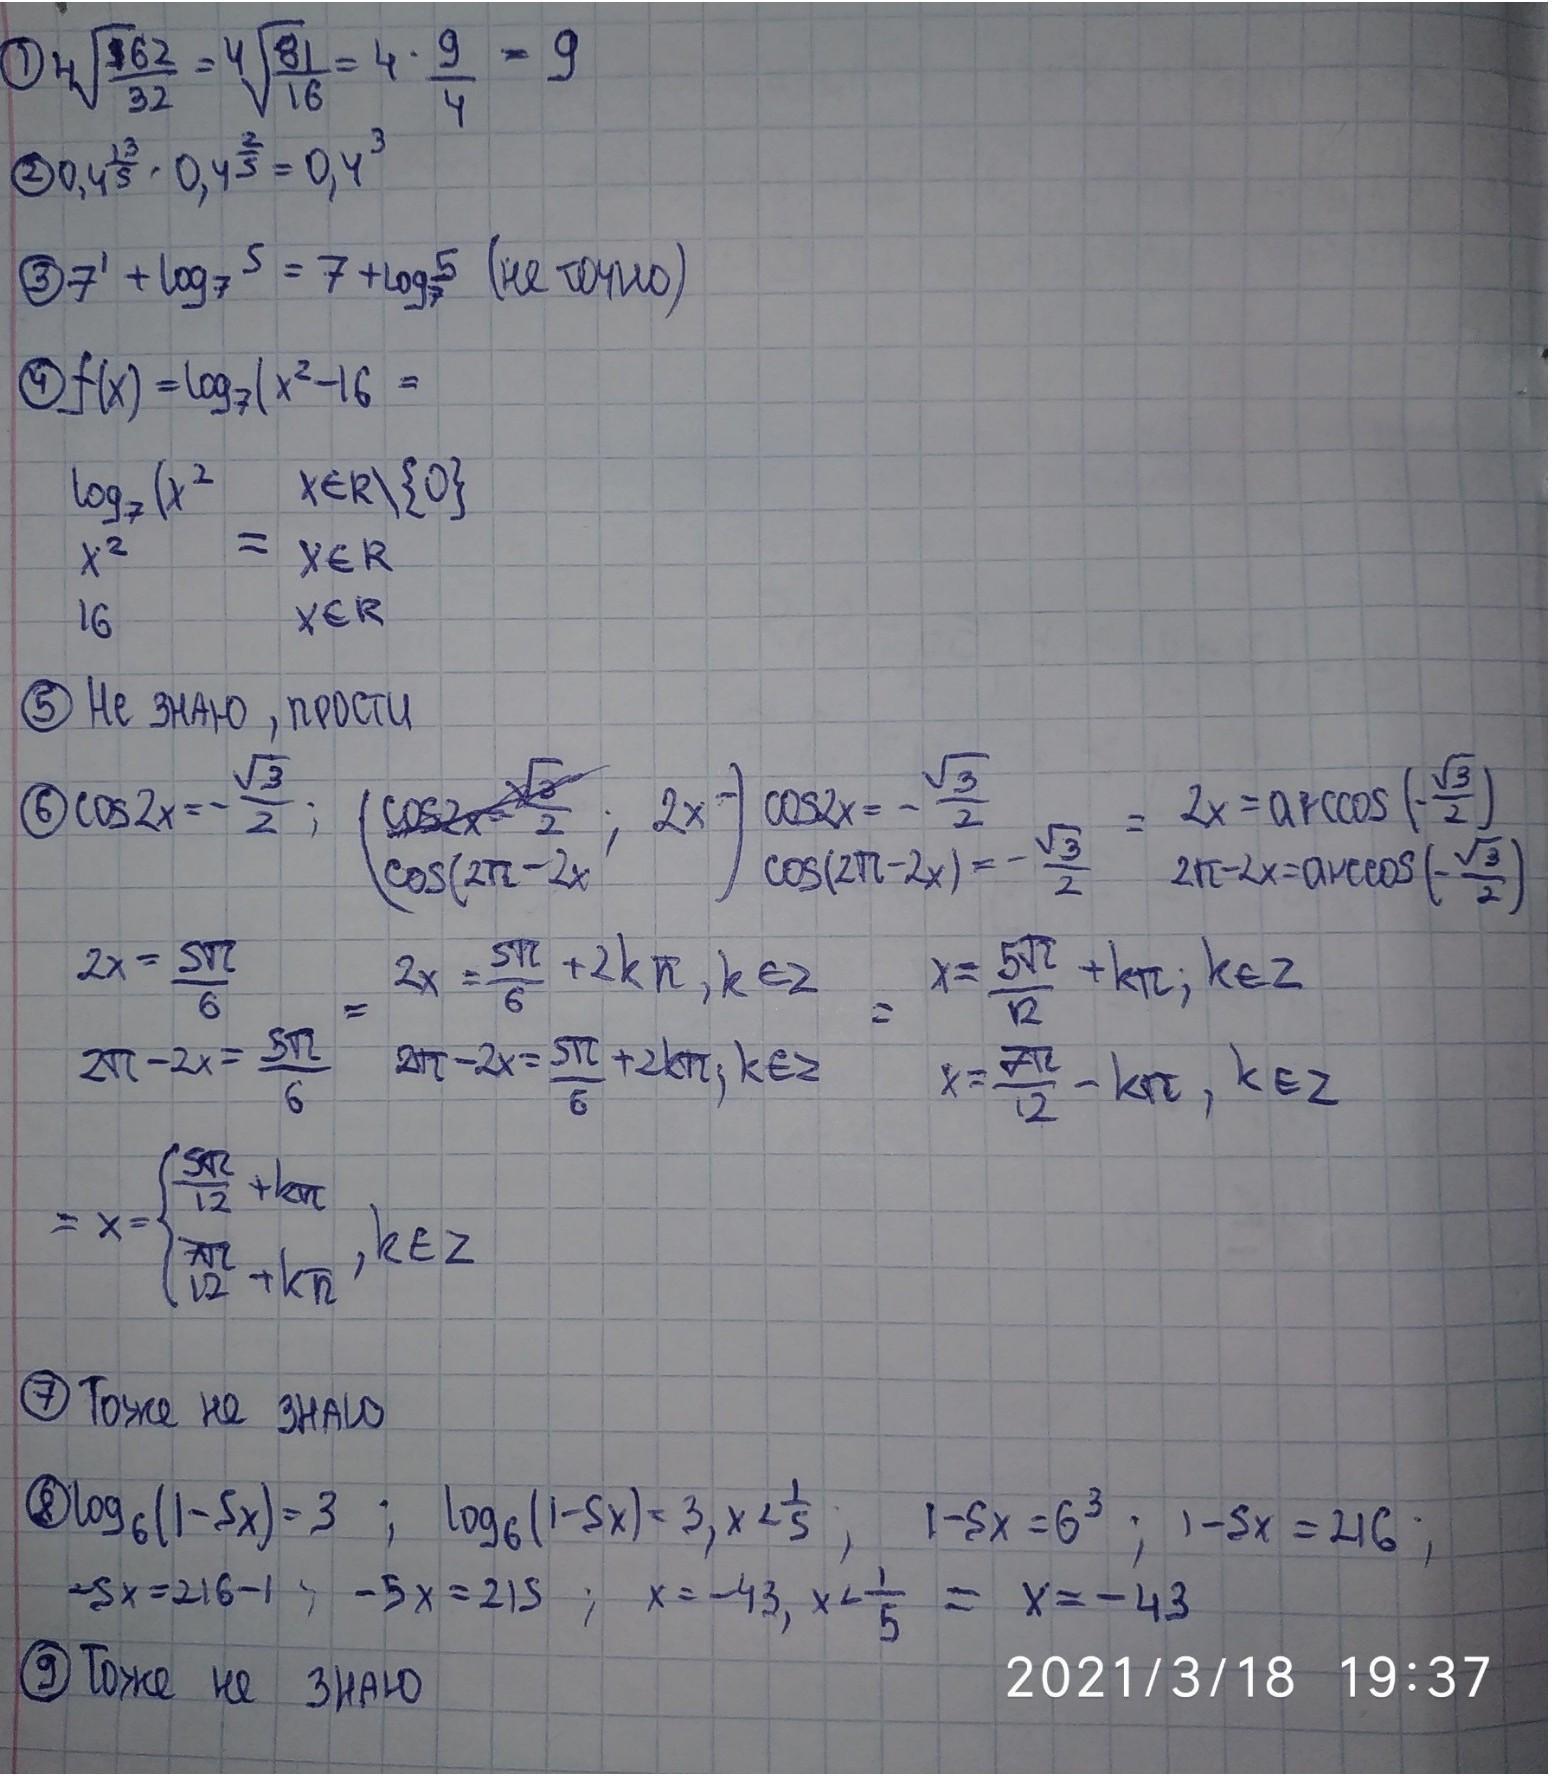 ① 4√162/32 = 4√81/16 = 4 · 9/4 = 9
② 0,4^13/5 · 0,4^2/5 = 0,4^3
③ 7^1 + log₇ 5 = 7 + log₇ 5 (не точно)
④ f(x) = log₇(x² - 16 =
log₇(x² x∈R\{0}
x² = x∈R
16 x∈R
⑤ Не знаю, прости
⑥ cos2x = -√3/2 ; (cos2x = √3/2 ; 2x = ) cos2x = -√3/2 = 2x = arccos(-√3/2)
cos(2π - 2x cos(2π - 2x) = -√3/2 2π - 2x = arccos(-√3/2)
2x = 5π/6 = 2x = 5π/6 + 2kπ, k∈Z = x = 5π/12 + kπ; k∈Z
2π - 2x = 5π/6 2π - 2x = 5π/6 + 2kπ; k∈Z x = 7π/12 - kπ, k∈Z
= x = { 5π/12 + kπ
7π/12 + kπ , k∈Z
⑦ Тоже не знаю
⑧ log₆(1-5x) = 3 ; log₆(1-5x) = 3, x < 1/5 ; 1-5x = 6³ ; 1-5x = 216 ;
-5x = 216-1 ; -5x = 215 ; x = -43, x < 1/5 = x = -43
⑨ Тоже не знаю
2021/3/18 19:37